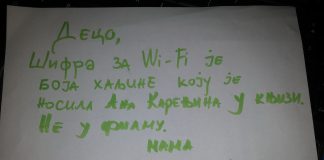 Децо,
Шифра за Wi-Fi је
боја хаљине коју је
носила Ана Карењина у књизи.
Не у филму.
мама